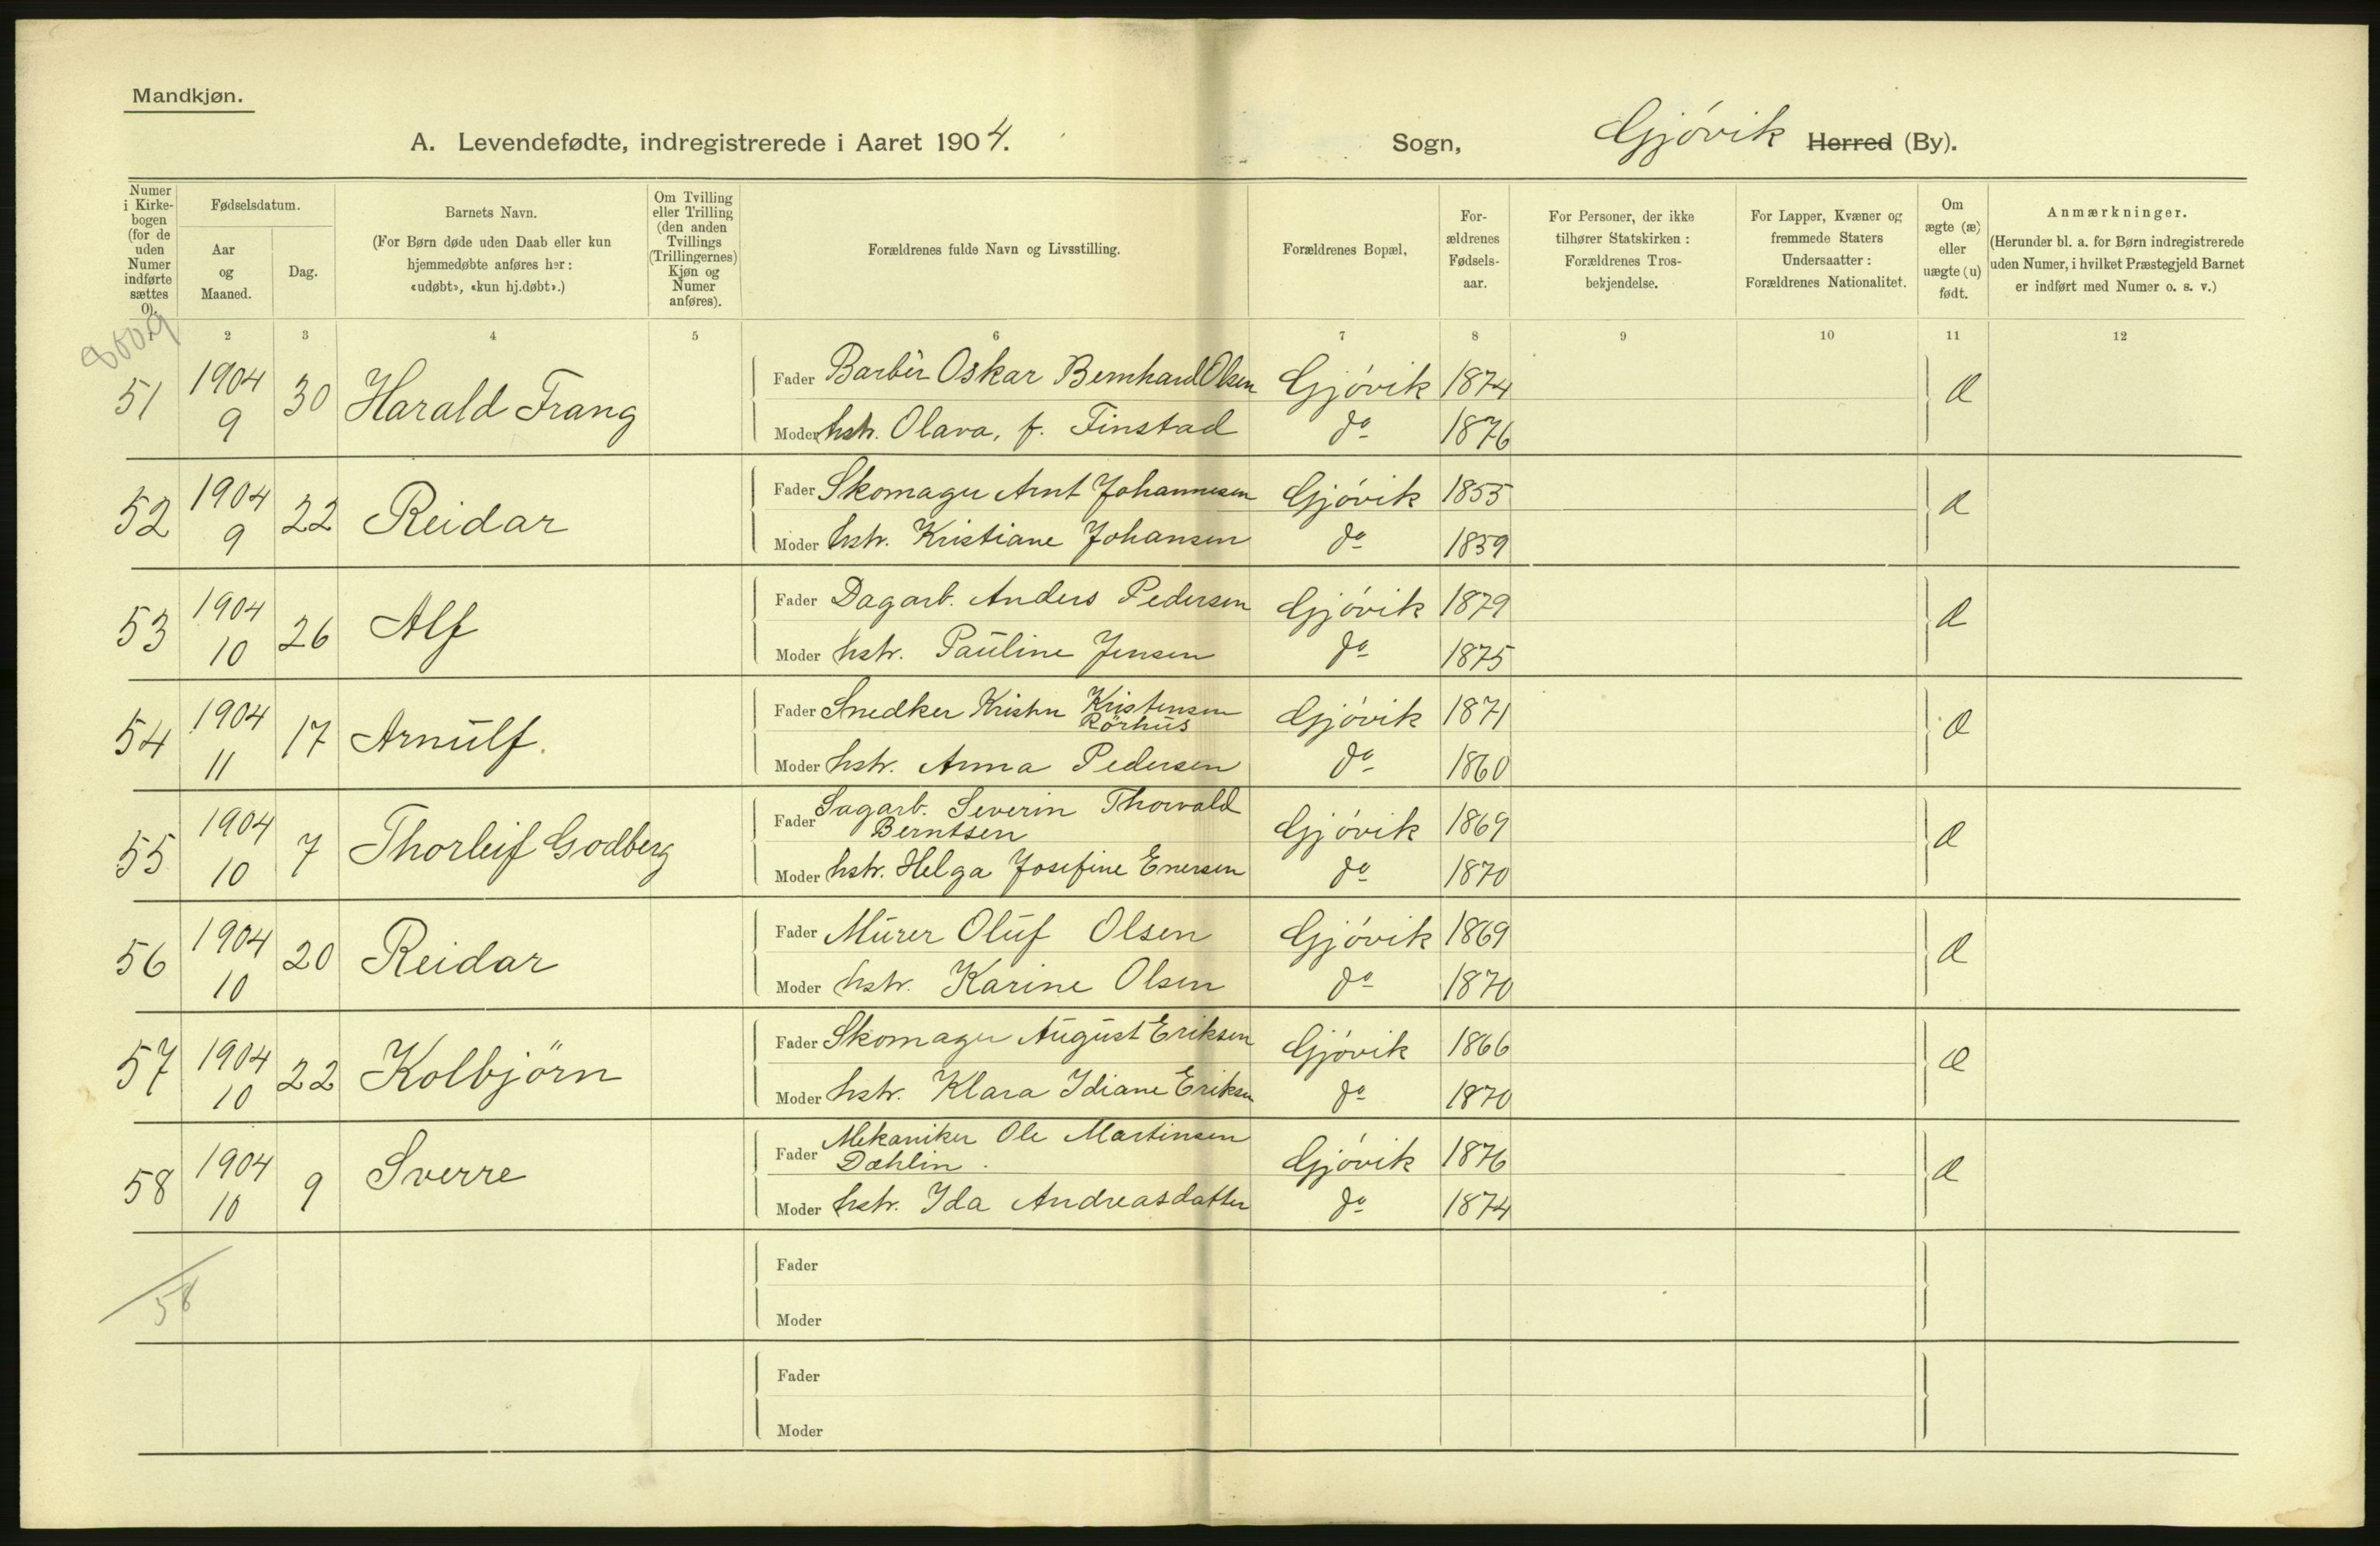 Mandkjøn.
A. Levendefødte, indregistrerede i Aaret 1904. Sogn, Gjövik Herred (By).
Numer i Kirkebogen (for de uden Numer indførte sættes 0).
Fødselsdatum.
Aar og Maaned.
Dag.
Barnets Navn.
(For Børn døde uden Daab eller kun
hjemmedøbte anføres her:
«udøbt», «kun hj.døbt».)
Om Tvilling
eller Trilling
(den anden
Tvillings
(Trillingernes)
Kjøn og
Numer
anføres).
Forældrenes fulde Navn og Livsstilling.
Forældrenes Bopæl,
For-
ældrenes
Fødsels-
aar.
For Personer, der ikke
tilhører Statskirken:
Forældrenes Tros-
bekjendelse.
For Lapper, Kvæner og
fremmede Staters
Undersaatter:
Forældrenes Nationalitet.
Om
ægte (æ)
eller
uægte (u)
født.
Anmærkninger.
(Herunder bl. a. for Børn indregistrerede
uden Numer, i hvilket Præstegjeld Barnet
er indført med Numer o. s. v.)
2 3 4 5 6 7 8 9 10 11 12
51 1904 9 30 Harald Frang
Fader Barbér Oskar Bernhard Olsen Gjövik 1874 æ
Moder hstr. Olava, f. Finstad do 1876
52 1904 9 22 Reidar
Fader Skomager Arnt Johannesen Gjövik 1855 æ
Moder hstr. Kristiane Johansen do 1859
53 1904 10 26 Alf
Fader Dagarb. Anders Pedersen Gjövik 1879 æ
Moder hstr. Pauline Jensen do 1875
54 1904 11 17 Arnulf.
Fader Snedker Kristen Kristensen Rörhus Gjövik 1871 æ
Moder hstr. Anna Pedersen do 1860
55 1904 10 7 Thorleif Godberg
Fader Sagarb. Severin Thorvald
Berntsen Gjövik 1869 æ
Moder hstr. Helga Josefine Enersen do 1870
56 1904 10 20 Reidar
Fader Murer Oluf Olsen Gjövik 1869 æ
Moder hstr. Karine Olsen do 1870
57 1904 10 22 Kolbjörn
Fader Skomager August Eriksen Gjövik 1866 æ
Moder hstr. Klara Idiane Eriksen do 1870
58 1904 10 9 Sverre
Fader Mekaniker Ole Martinsen
Dæhlin. Gjövik 1876 æ
Moder hstr. Ida Andreasdatter do 1874
58
Fader
Moder
Fader
Moder